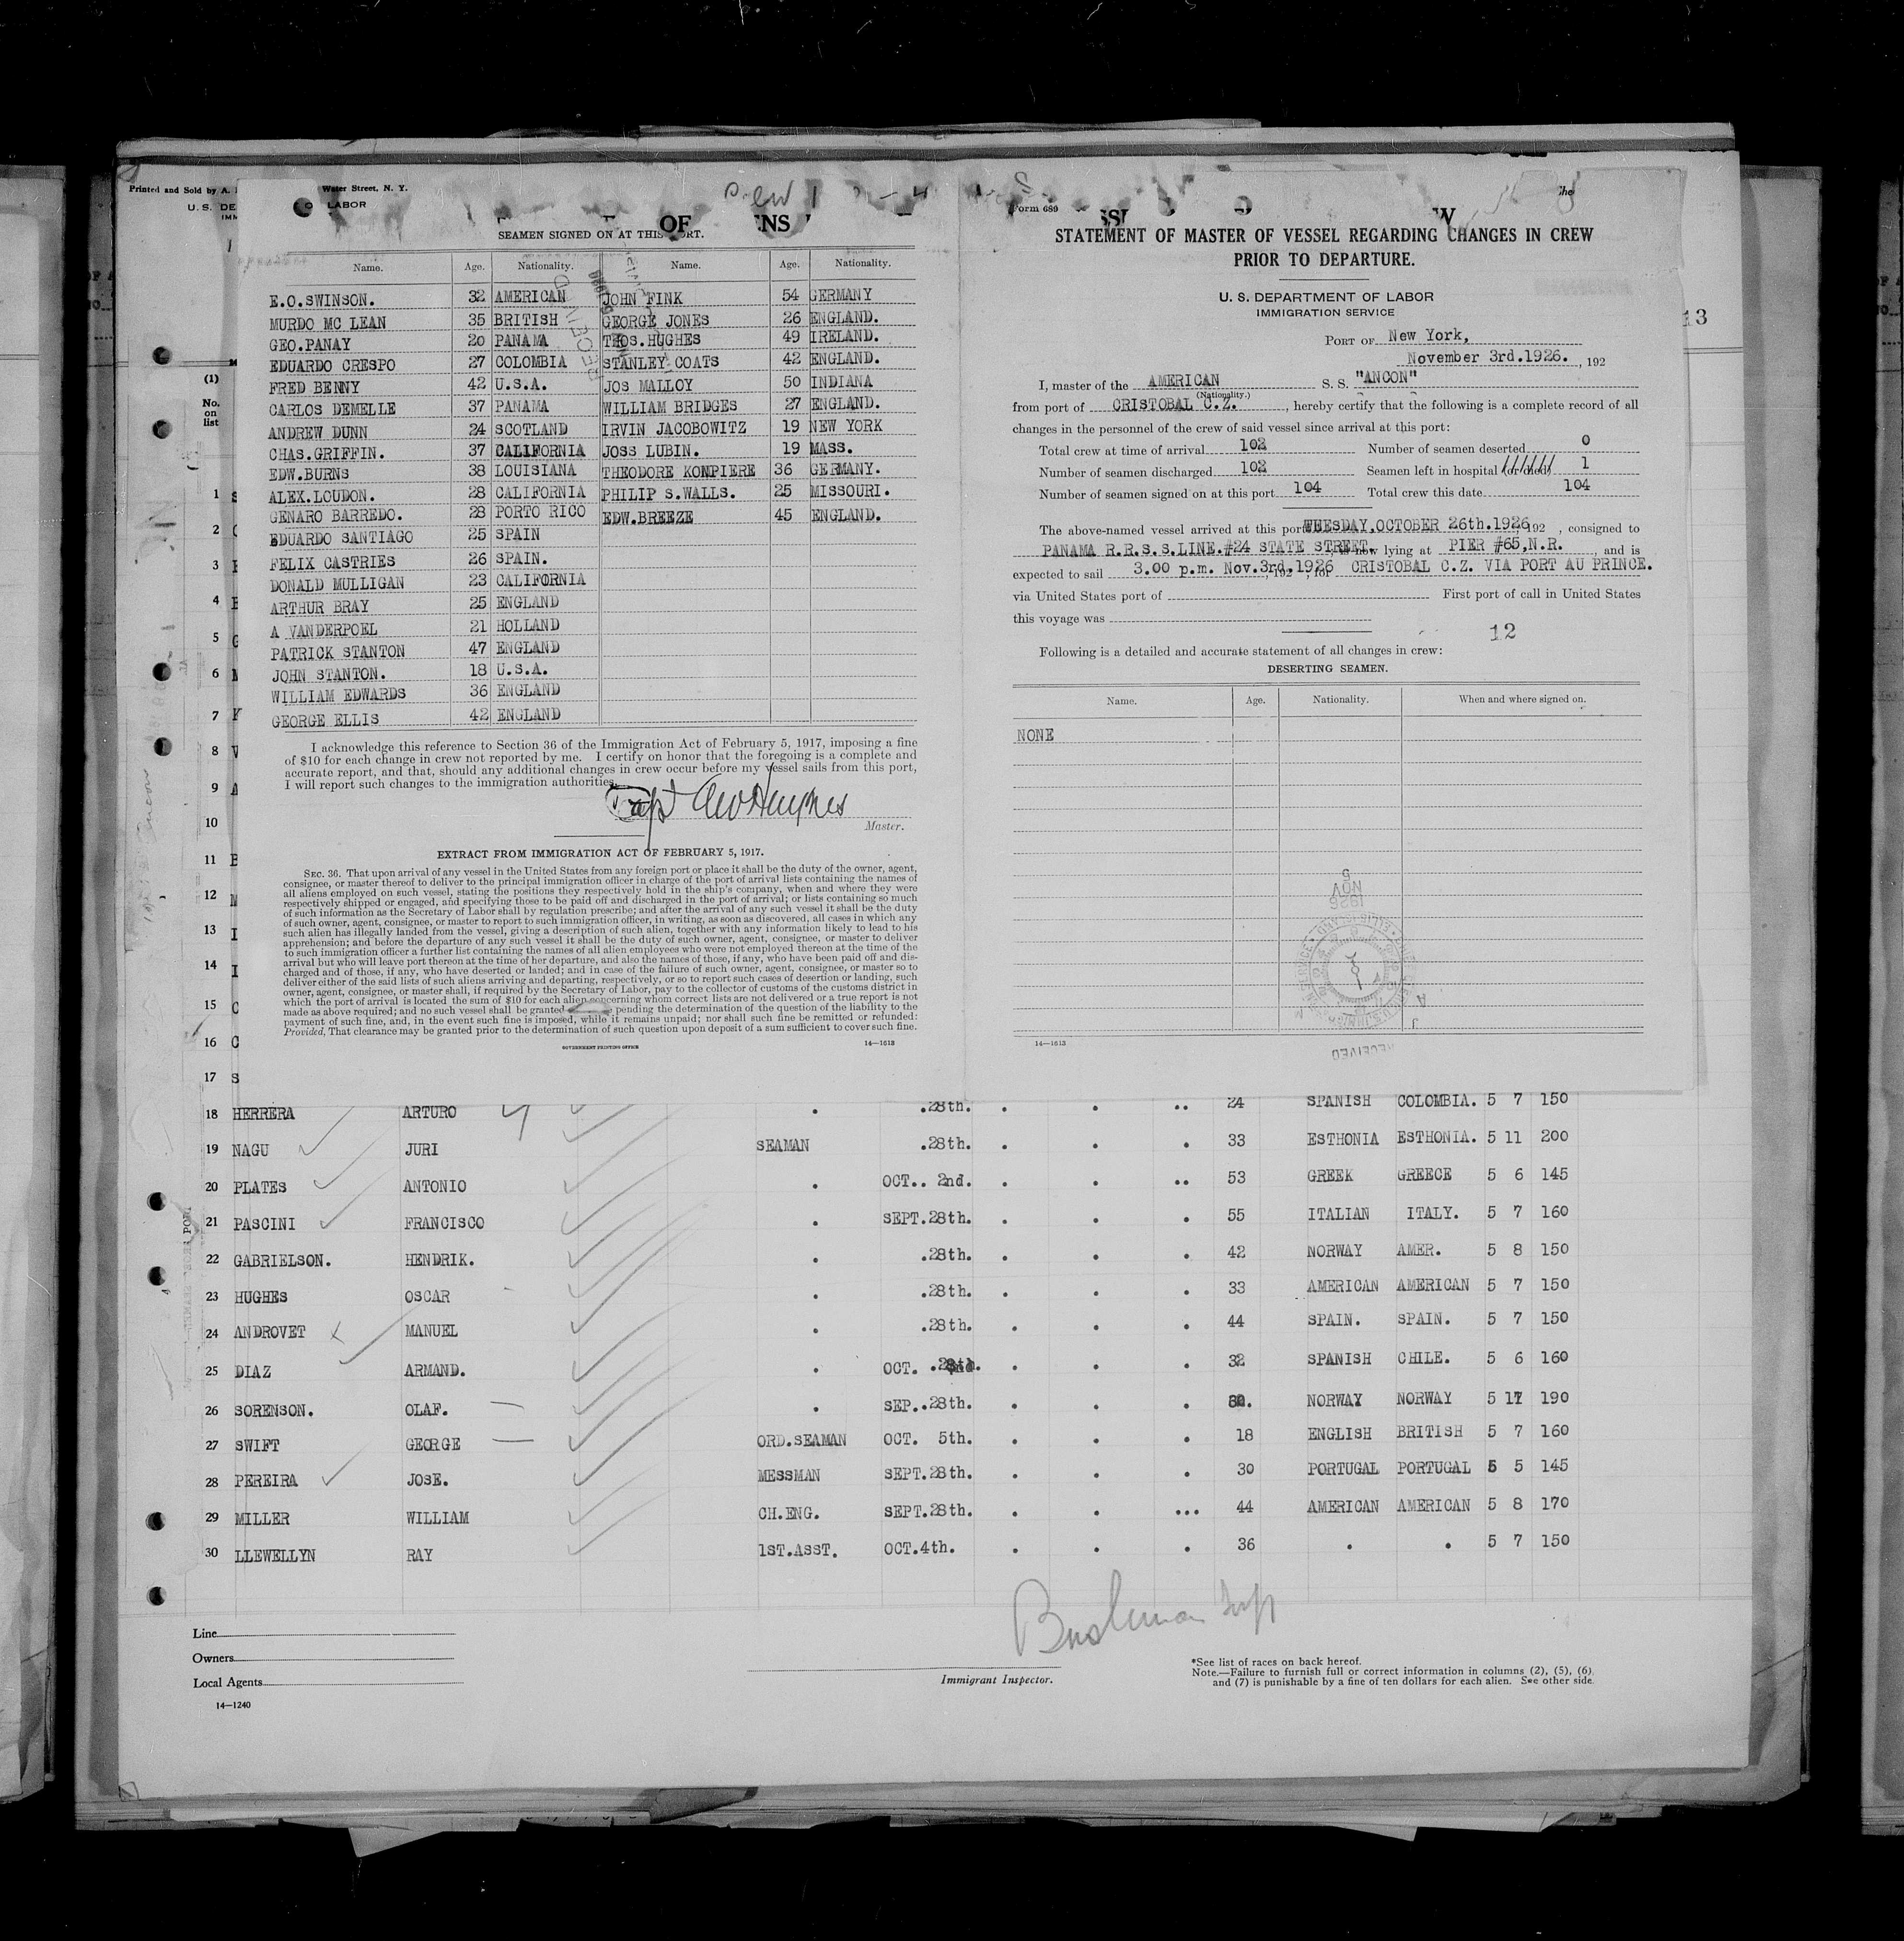 Printed and Sold by A.
Water Street, N. Y.
U. S. DE
LABOR
IMM
OF
SEAMEN SIGNED ON AT THIS PORT.
Name. Age. Nationality. Name. Age. Nationality.
E.O.SWINSON. 32 AMERICAN JOHN FINK 54 GERMANY
MURDO MC LEAN 35 BRITISH GEORGE JONES 26 ENGLAND.
GEO.PANAY 20 PANAMA THOS.HUGHES 49 IRELAND.
EDUARDO CRESPO 27 COLOMBIA STANLEY COATS 42 ENGLAND.
FRED BENNY 42 U.S.A. JOS MALLOY 50 INDIANA
CARLOS DEMELLE 37 PANAMA WILLIAM BRIDGES 27 ENGLAND.
ANDREW DUNN 24 SCOTLAND IRVIN JACOBOWITZ 19 NEW YORK
CHAS.GRIFFIN. 37 CALIFORNIA JOSS LUBIN. 19 MASS.
EDW.BURNS 38 LOUISIANA THEODORE KONPIERE 36 GERMANY.
ALEX.LOUDON. 28 CALIFORNIA PHILIP S.WALLS. 25 MISSOURI.
GENARO BARREDO. 28 PORTO RICO EDW.BREEZE 45 ENGLAND.
EDUARDO SANTIAGO 25 SPAIN
FELIX CASTRIES 26 SPAIN.
DONALD MULLIGAN 23 CALIFORNIA
ARTHUR BRAY 25 ENGLAND
A VANDERPOEL 21 HOLLAND
PATRICK STANTON 47 ENGLAND
JOHN STANTON. 18 U.S.A.
WILLIAM EDWARDS 36 ENGLAND
GEORGE ELLIS 42 ENGLAND
I acknowledge this reference to Section 36 of the Immigration Act of February 5, 1917, imposing a fine
of $10 for each change in crew not reported by me. I certify on honor that the foregoing is a complete and
accurate report, and that, should any additional changes in crew occur before my vessel sails from this port,
I will report such changes to the immigration authorities.
Master.
EXTRACT FROM IMMIGRATION ACT OF FEBRUARY 5, 1917.
SEC. 36. That upon arrival of any vessel in the United States from any foreign port or place it shall be the duty of the owner, agent,
consignee, or master thereof to deliver to the principal immigration officer in charge of the port of arrival lists containing the names of
all aliens employed on such vessel, stating the positions they respectively hold in the ship's company, when and where they were
respectively shipped or engaged, and specifying those to be paid off and discharged in the port of arrival; or lists containing so much
of such information as the Secretary of Labor shall by regulation prescribe; and after the arrival of any such vessel it shall be the duty
of such owner, agent, consignee, or master to report to such immigration officer, in writing, as soon as discovered, all cases in which any
such alien has illegally landed from the vessel, giving a description of such alien, together with any information likely to lead to his
apprehension; and before the departure of any such vessel it shall be the duty of such owner, agent, consignee, or master to deliver
to such immigration officer a further list containing the names of all alien employees who were not employed thereon at the time of the
arrival but who will leave port thereon at the time of her departure, and also the names of those, if any, who have been paid off and dis-
charged and of those, if any, who have deserted or landed; and in case of the failure of such owner, agent, consignee, or master so to
deliver either of the said lists of such aliens arriving and departing, respectively, or so to report such cases of desertion or landing, such
owner, agent, consignee, or master shall, if required by the Secretary of Labor, pay to the collector of customs of the customs district in
which the port of arrival is located the sum of $10 for each alien concerning whom correct lists are not delivered or a true report is not
made as above required; and no such vessel shall be granted pending the determination of the question of the liability to the
payment of such fine, and, in the event such fine is imposed, while it remains unpaid; nor shall such fine be remitted or refunded:
Provided, That clearance may be granted prior to the determination of such question upon deposit of a sum sufficient to cover such fine.
GOVERNMENT PRINTING OFFICE 14—1613
Form 689
STATEMENT OF MASTER OF VESSEL REGARDING CHANGES IN CREW
PRIOR TO DEPARTURE.
U. S. DEPARTMENT OF LABOR
IMMIGRATION SERVICE
13
PORT OF New York,
November 3rd.1926. , 192
I, master of the AMERICAN S. S. "ANCON"
(Nationality.)
from port of CRISTOBAL C.Z. , hereby certify that the following is a complete record of all
changes in the personnel of the crew of said vessel since arrival at this port:
Total crew at time of arrival 102 Number of seamen deserted 0
Number of seamen discharged 102 Seamen left in hospital (or died) 1
Number of seamen signed on at this port 104 Total crew this date 104
The above-named vessel arrived at this port TUESDAY,OCTOBER 26th.1926 192 , consigned to
PANAMA R.R.S.S.LINE.#24 STATE STREET, is now lying at PIER #65,N.R. , and is
expected to sail 3.00 p.m. Nov.3rd.1926 , 192 , for CRISTOBAL C.Z. VIA PORT AU PRINCE.
via United States port of First port of call in United States
this voyage was
12
Following is a detailed and accurate statement of all changes in crew:
DESERTING SEAMEN.
Name. Age. Nationality. When and where signed on.
NONE
5
NOV
1926
RECEIVED
14—1613
(1)
No.
on
list
1
2
3
4
5
6
7
8
9
10
11
12
13
14
15
16
17
18 HERRERA ARTURO . .28th. . . .. 24 SPANISH COLOMBIA. 5 7 150
19 NAGU JURI SEAMAN .28th. . . . 33 ESTHONIA ESTHONIA. 5 11 200
20 PLATES ANTONIO . OCT.. 2nd. . . .. 53 GREEK GREECE 5 6 145
21 PASCINI FRANCISCO . SEPT.28th. . . . 55 ITALIAN ITALY. 5 7 160
22 GABRIELSON. HENDRIK. . .28th. . . . 42 NORWAY AMER. 5 8 150
23 HUGHES OSCAR . .28th. . . . 33 AMERICAN AMERICAN 5 7 150
24 ANDROVET MANUEL . .28th. . . . 44 SPAIN. SPAIN. 5 7 150
25 DIAZ ARMAND. . OCT. . . . 32 SPANISH CHILE. 5 6 160
26 SORENSON. OLAF. . SEP..28th. . . . NORWAY NORWAY 5 190
27 SWIFT GEORGE ORD.SEAMAN OCT. 5th. . . . 18 ENGLISH BRITISH 5 7 160
28 PEREIRA JOSE. MESSMAN SEPT.28th. . . . 30 PORTUGAL PORTUGAL 5 5 145
29 MILLER WILLIAM CH.ENG. SEPT.28th. . . ... 44 AMERICAN AMERICAN 5 8 170
30 LLEWELLYN RAY 1ST.ASST. OCT.4th. . . . 36 . . 5 7 150
Line
Owners
Local Agents
14—1240
Immigrant Inspector.
*See list of races on back hereof.
Note.—Failure to furnish full or correct information in columns (2), (5), (6),
and (7) is punishable by a fine of ten dollars for each alien. See other side.